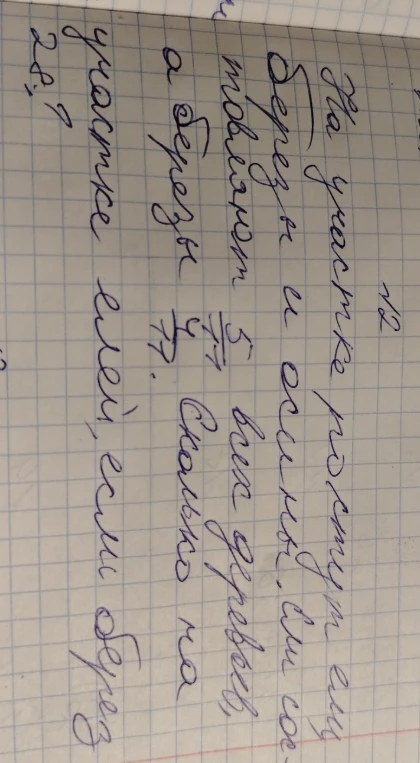 №2
На участке растут ели
березы и осины. Ели сос-
товляют 5/11 всех деревьев,
а березы 4/11. Сколько на
участке елей, если берез
28.?